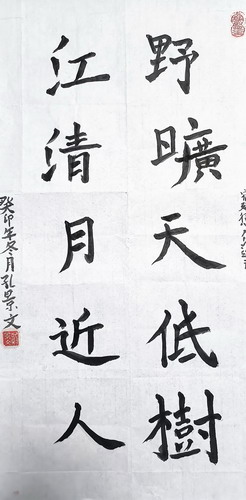 野曠天低樹
江清月近人
癸卯年冬月孔景文